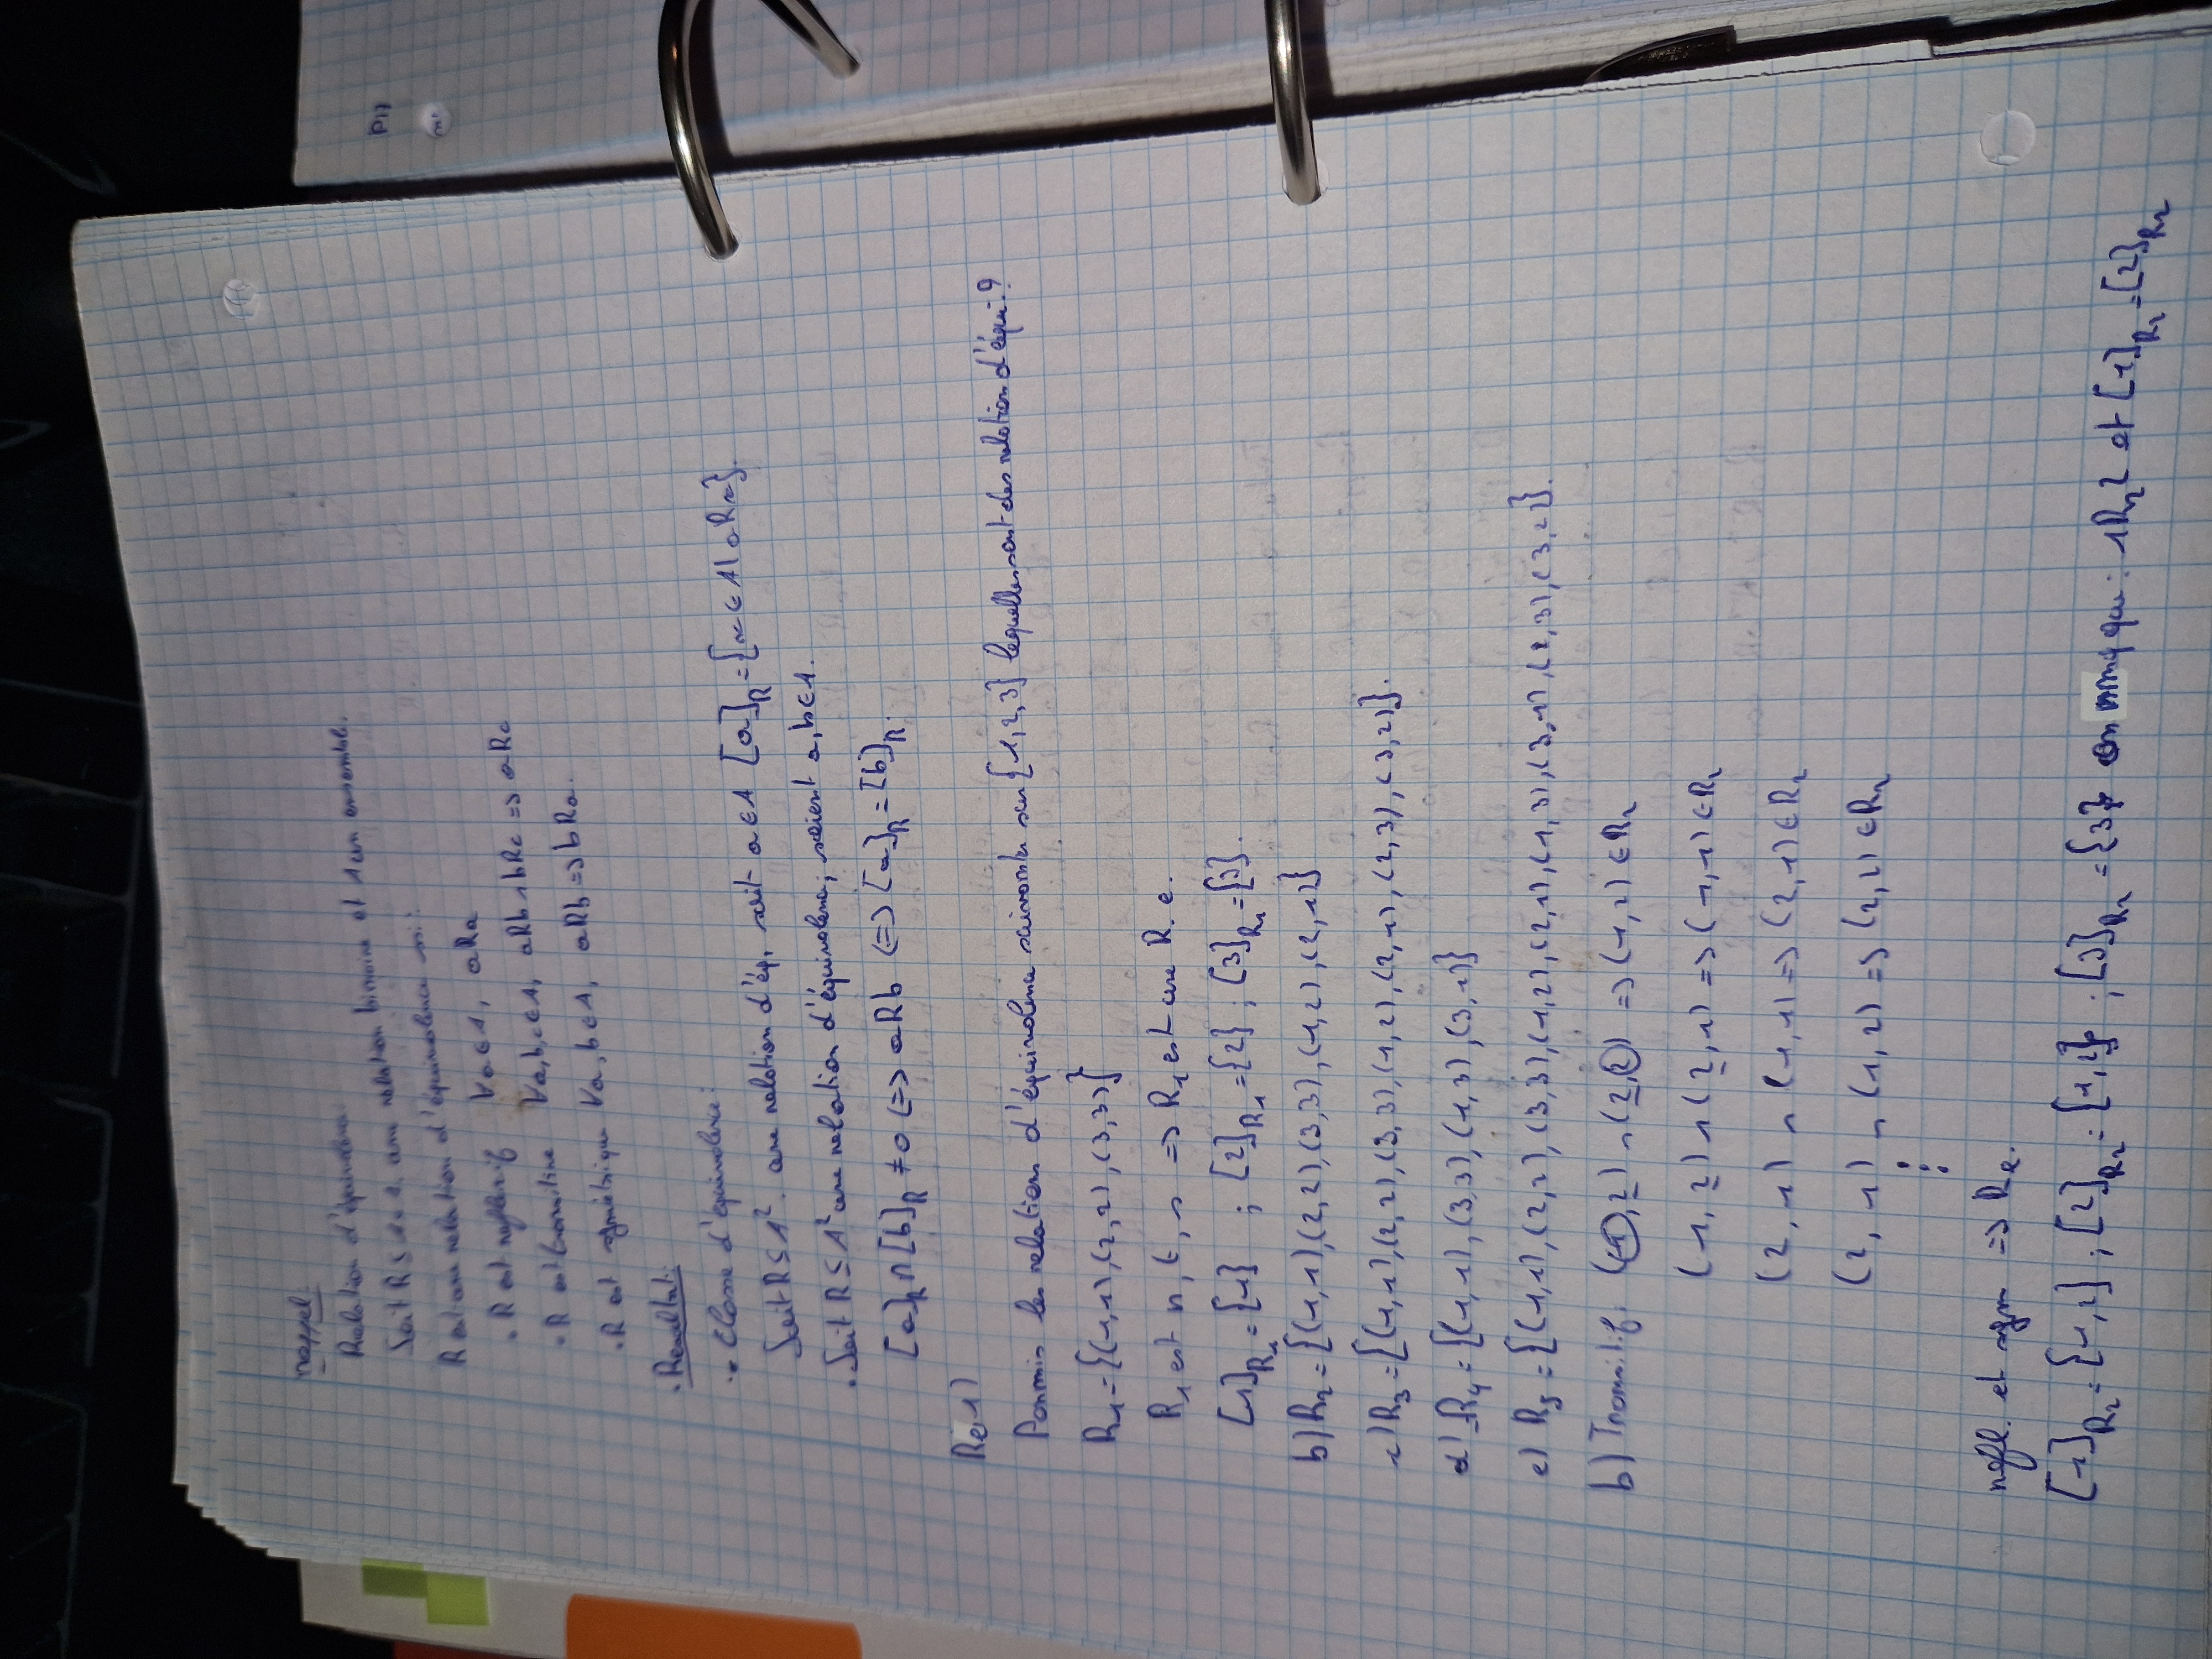 Rappel:
Relation d'équivalence:
Soit R ⊆ A × A, une relation binaire et A un ensemble.
R est une relation d'équivalence ssi:
• R est reflexif ∀a ∈ A, aRa
• R est transitive ∀a,b,c ∈ A, aRb ∧ bRc => aRc
• R est symétrique ∀a,b ∈ A, aRb => bRa.
• Resultat:
• Classe d'équivalence:
Soit R ⊆ A². une relation d'éq, soit a ∈ A [a]_R = {x ∈ A | aRx}.
• Soit R ⊆ A² une relation d'équivalence; soient a,b ∈ A.
[a]_R ∩ [b]_R ≠ ∅ <=> aRb <=> [a]_R = [b]_R.
Re 1)
Parmis les relations d'équivalence suivantes sur {1,2,3} lequelles sont des relation d'équi.?
R₁ = {(1,1),(2,2),(3,3)}
R₁ est r, t, s => R₁ est une R.e.
[1]_R₁ = {1} ; [2]_R₁ = {2} ; [3]_R₁ = {3}.
b) R₂ = {(1,1),(2,2),(3,3),(1,2),(2,1)}
c) R₃ = {(1,1),(2,2),(3,3),(1,2),(2,1),(2,3),(3,2)}.
d) R₄ = {(1,1),(3,3),(1,3),(3,1)}
e) R₅ = {(1,1),(2,2),(3,3),(1,2),(2,1),(1,3),(3,1),(2,3),(3,2)}.
b) Transitif: (1,2) ∧ (2,2) => (1,2) ∈ R₂
(1,2) ∧ (2,1) => (1,1) ∈ R₂
(2,1) ∧ (1,1) => (2,1) ∈ R₂
(2,1) ∧ (1,2) => (2,2) ∈ R₂
⋮
refl. et sym => Re.
[1]_R₂ = {1,2} ; [2]_R₂ = {1,2} ; [3]_R₂ = {3} on rmq que: 1R₂2 et [1]_R₂ = [2]_R₂
P17